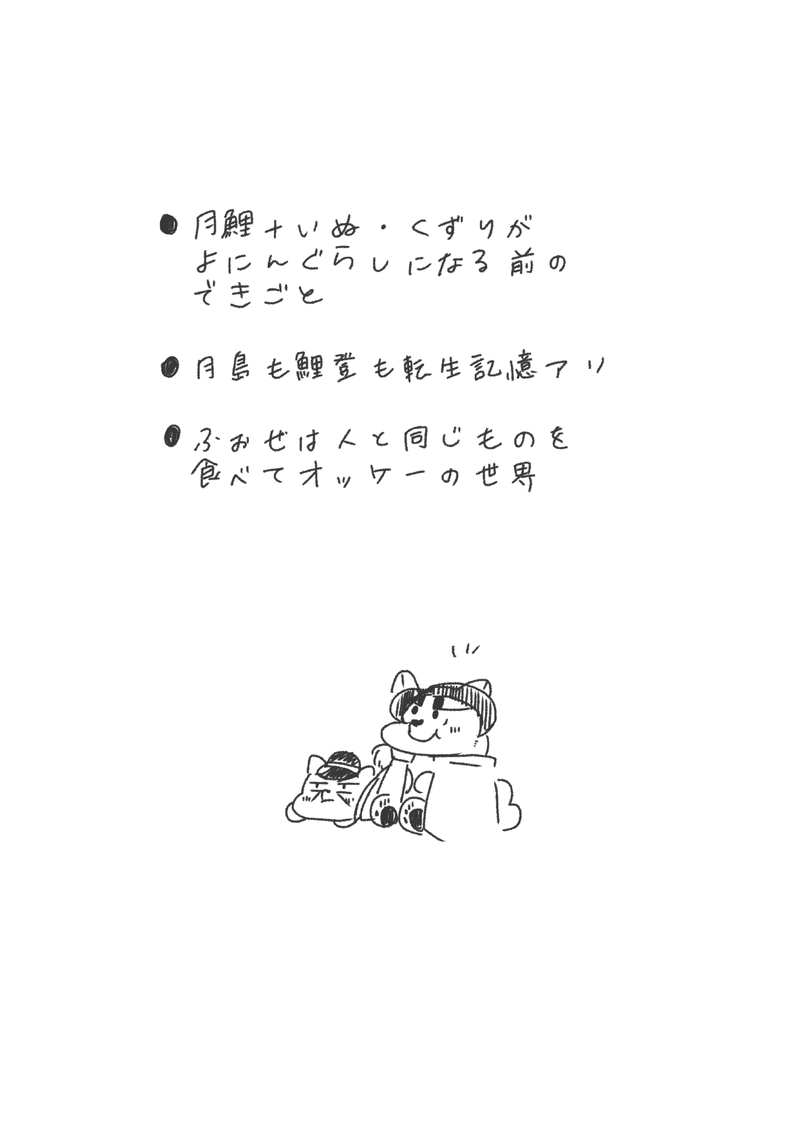 ● 月鯉+いぬ・くずりが
よにんぐらしになる前の
できごと
● 月島も鯉登も転生記憶アリ
● ふぉぜは人と同じものを
食べてオッケーの世界